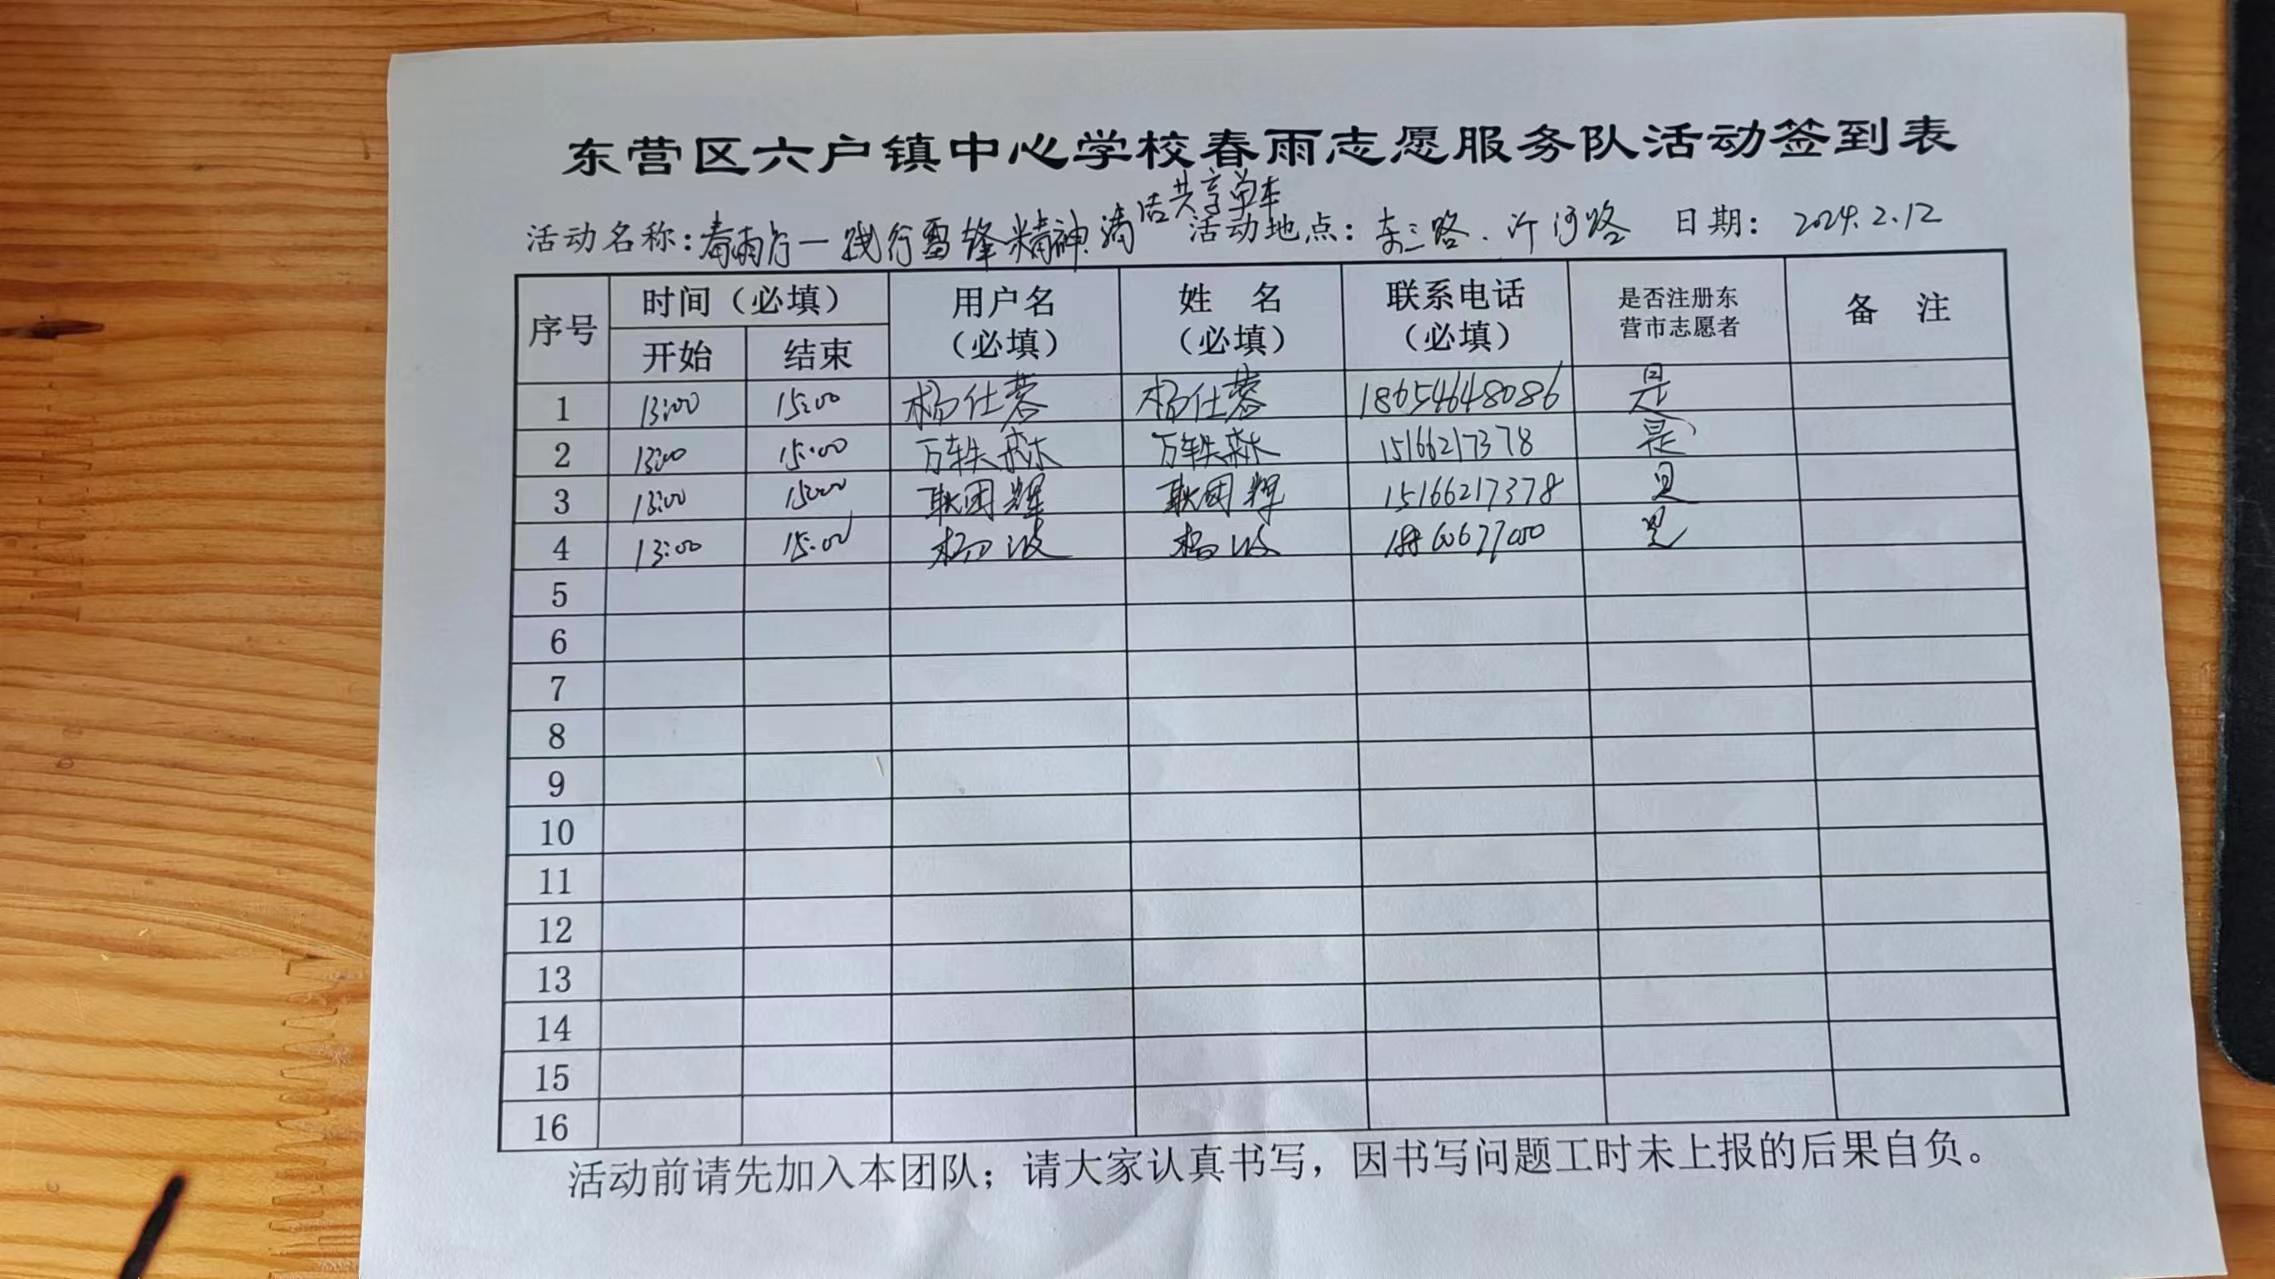 东营区六户镇中心学校春雨志愿服务队活动签到表
活动名称：春雨行—践行雷锋精神清洁共享单车 活动地点：东三路、沂河路 日期：2024.2.12
序号 时间（必填） 用户名（必填） 姓 名（必填） 联系电话（必填） 是否注册东营市志愿者 备 注
开始 结束
1 13:00 15:00 杨仕蓉 杨仕蓉 18654648086 是
2 13:00 15:00 万轶森 万轶森 15166217378 是
3 13:00 15:00 耿国辉 耿国辉 15166217378 是
4 13:00 15:00 杨波 杨波 是
5
6
7
8
9
10
11
12
13
14
15
16
活动前请先加入本团队；请大家认真书写，因书写问题工时未上报的后果自负。